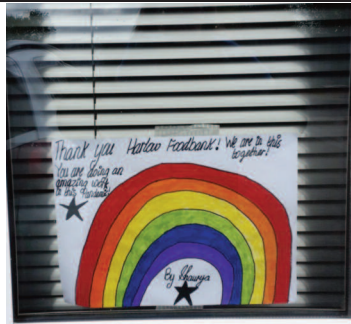 Thank you Harlow Foodbank! We are in this
together!
You are doing an
amazing work
in this Pandemic
By Shaurya